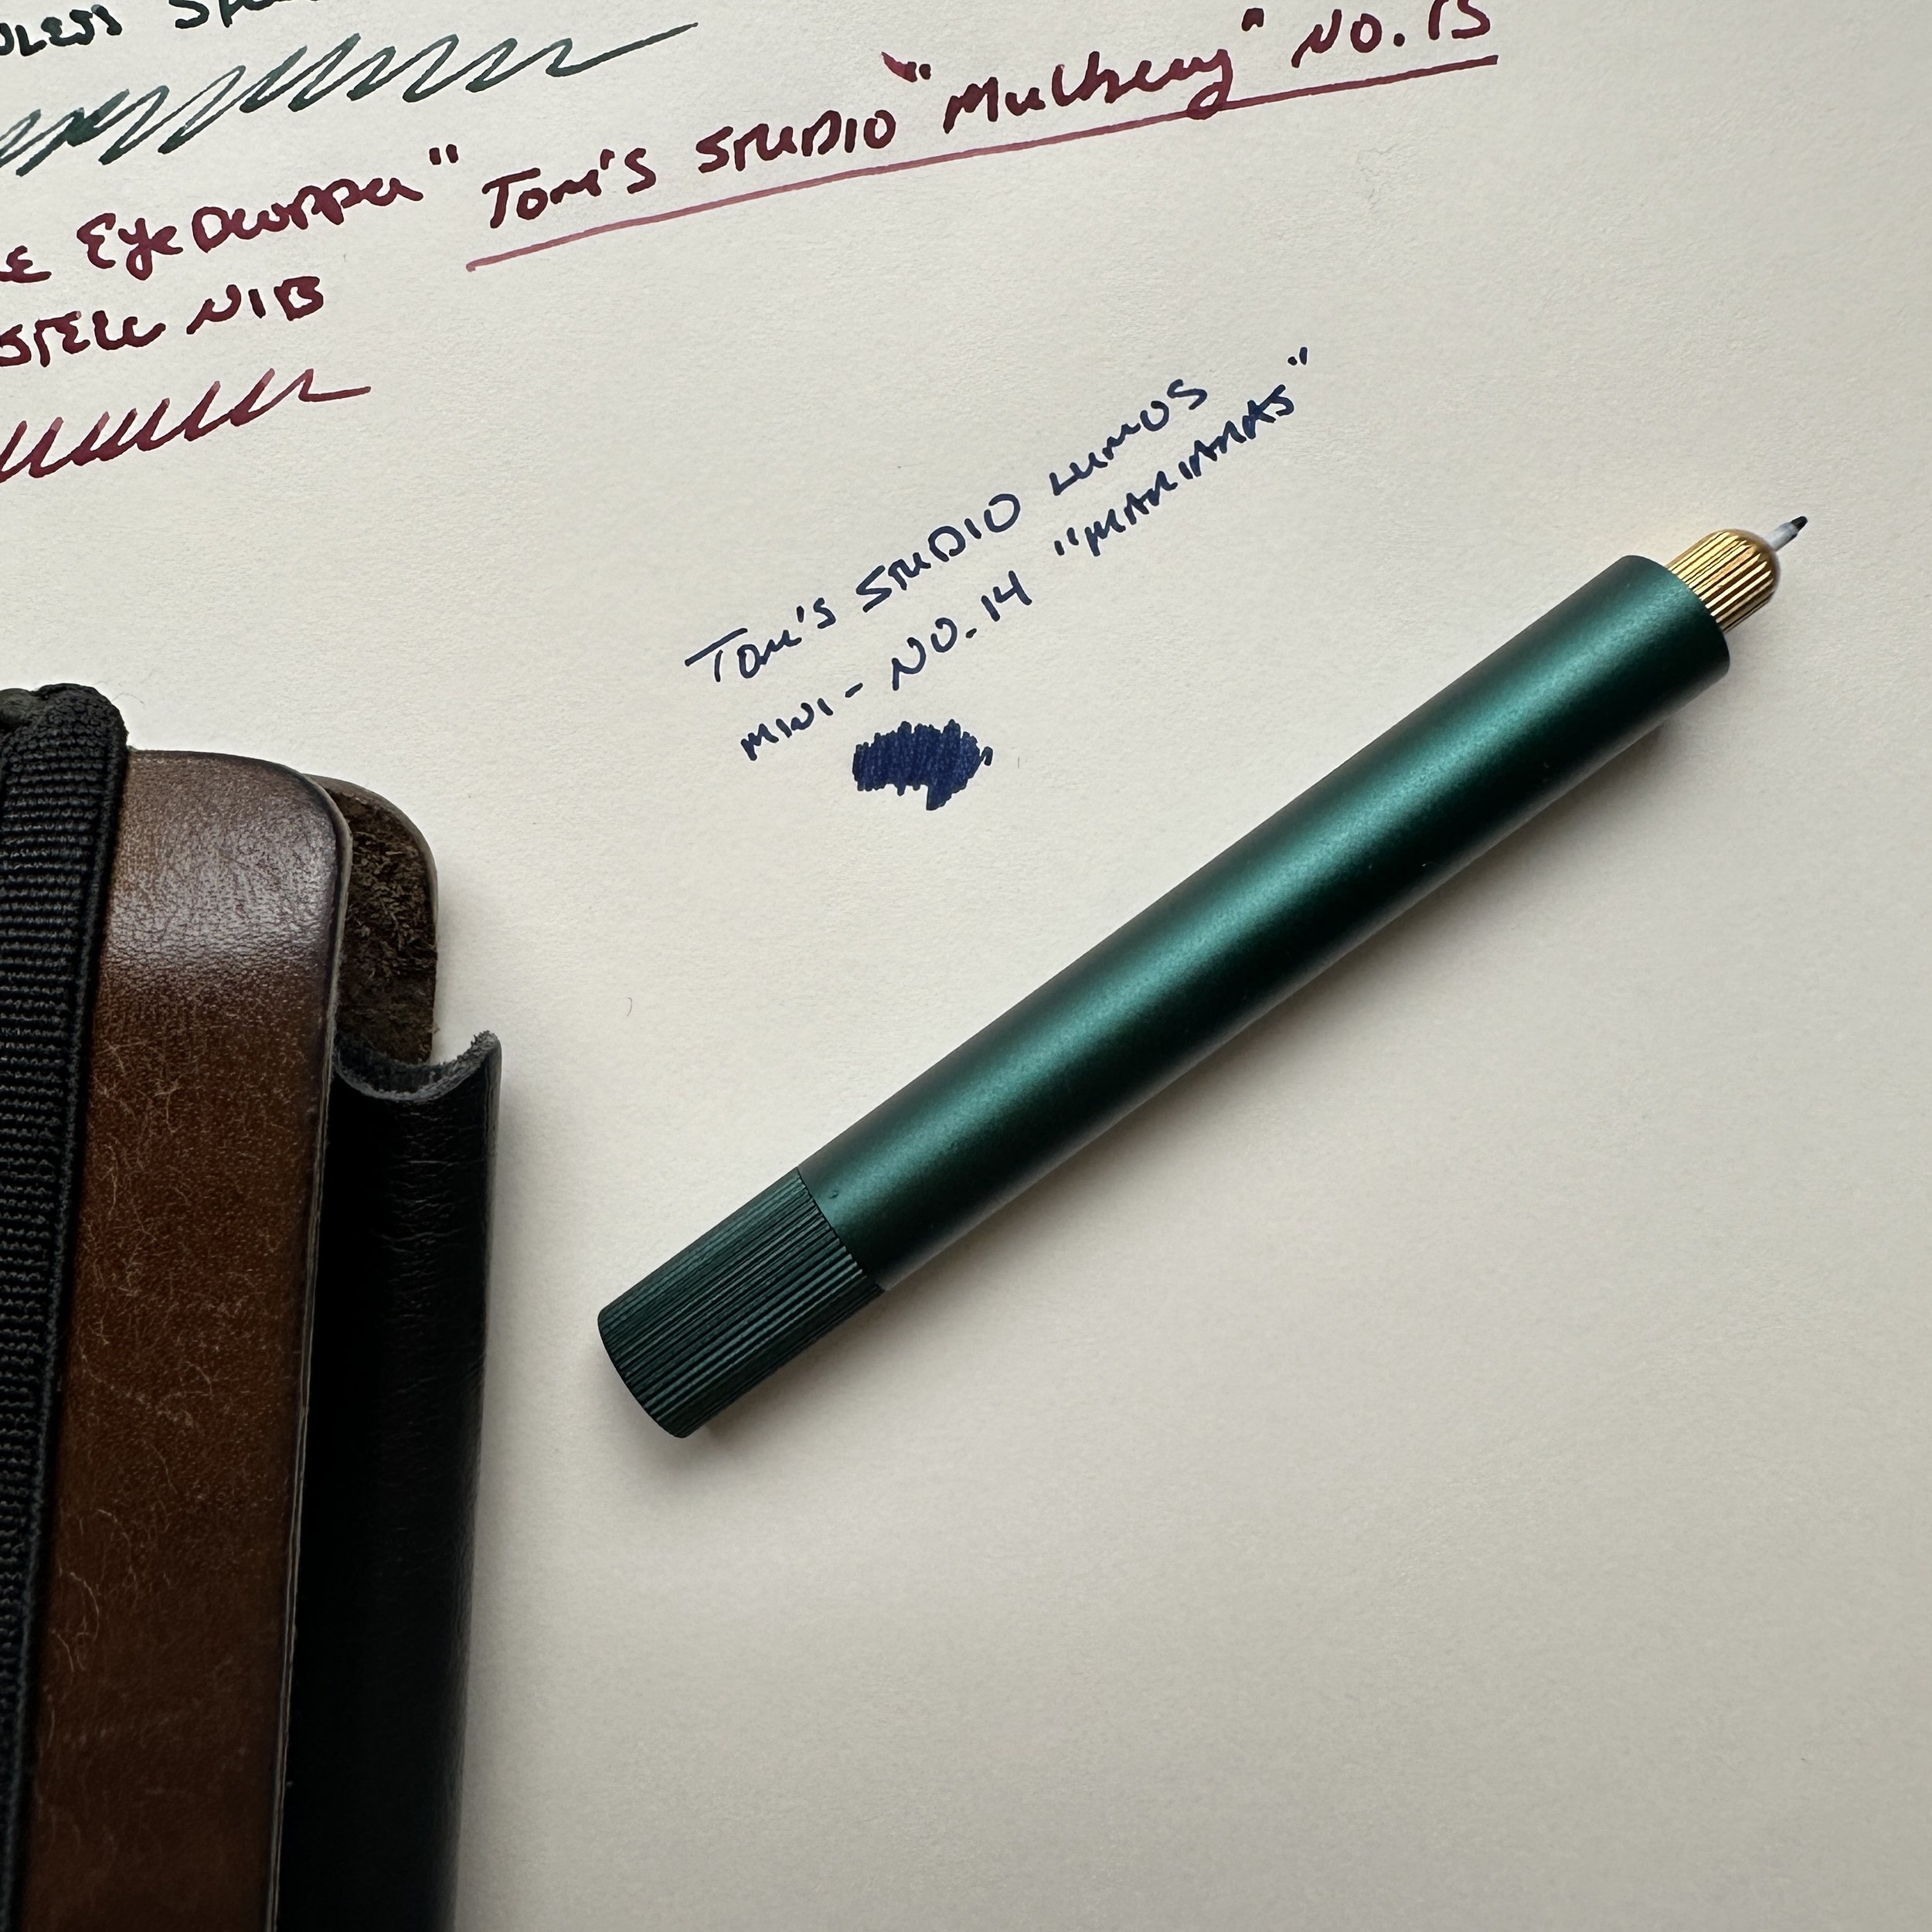 LESS
E EyeDropper" Tom's STUDIO "Mulberry" NO. 13
STEEL NIB
Tom's STUDIO LUMOS
MINI - NO. 14 "MARIANAS"